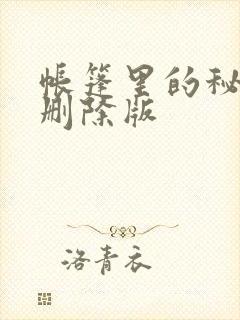 帐篷里的秘
删除版
洛青衣